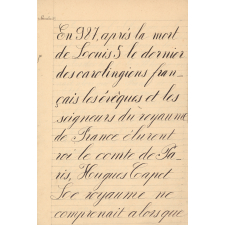 En 987, après la mort
de Louis 5 le dernier
des carolingiens fran-
çais les évêques et les
seigneurs du royaume
de France élurent
roi le comte de Pa-
ris, Hugues Capet
Le royaume ne
comprenait alors que